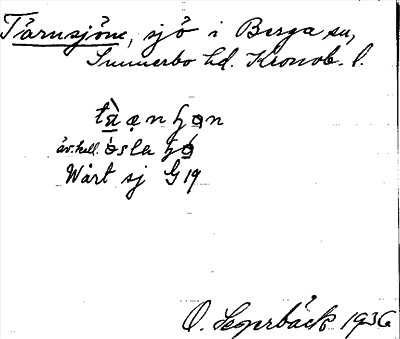 Tärnsjöne, sjö i Berga sn,
Sunnerbo hd. Kronob. l.
tàạnhọn
äv. kall. ósla hö́
Wårt sj G 19
O. Segerbäck 1936